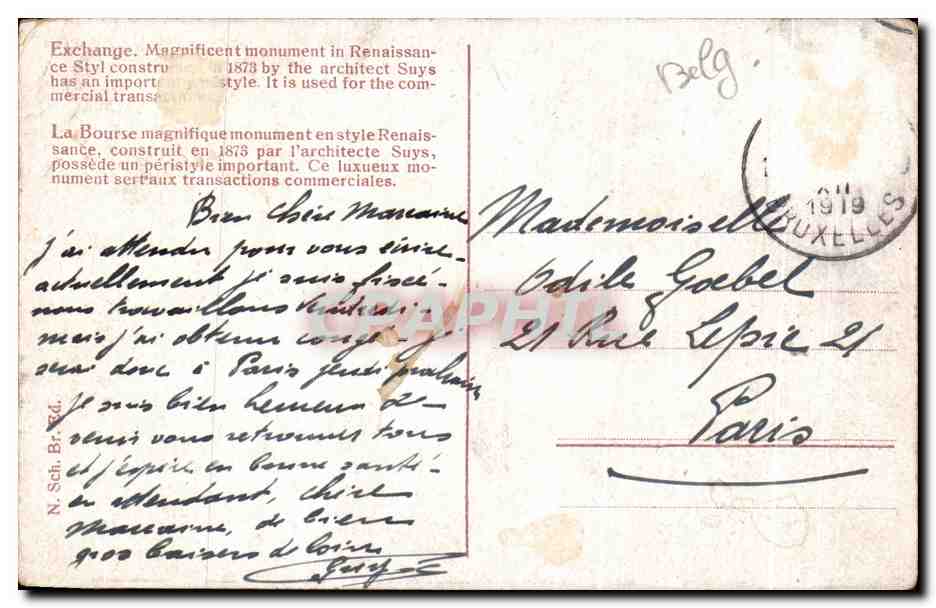 Exchange. Magnificent monument in Renaissan-
ce Styl constru 1873 by the architect Suys
has an import style. It is used for the com-
mercial transac
La Bourse magnifique monument en style Renais-
sance, construit en 1873 par l'architecte Suys,
possède un péristyle important. Ce luxueux mo-
nument sert aux transactions commerciales.
Belg.
1919
BRUXELLES
Bien chère Marraine
j'ai attendu pour vous écrire
actuellement je suis fixé -
nous travaillons Vendredi -
mais j'ai obtenu congé - je
serai donc à Paris jeudi prochain
je suis bien heureux de
venir vous retrouver tous
et j'espère en bonne santé -
en attendant, chère
Marraine, de bien
gros baisers de loin
Mademoiselle
Odile Goebel
21 Rue Lepic 21
Paris
N. Sch. Br. Ed.
CPAPHIL